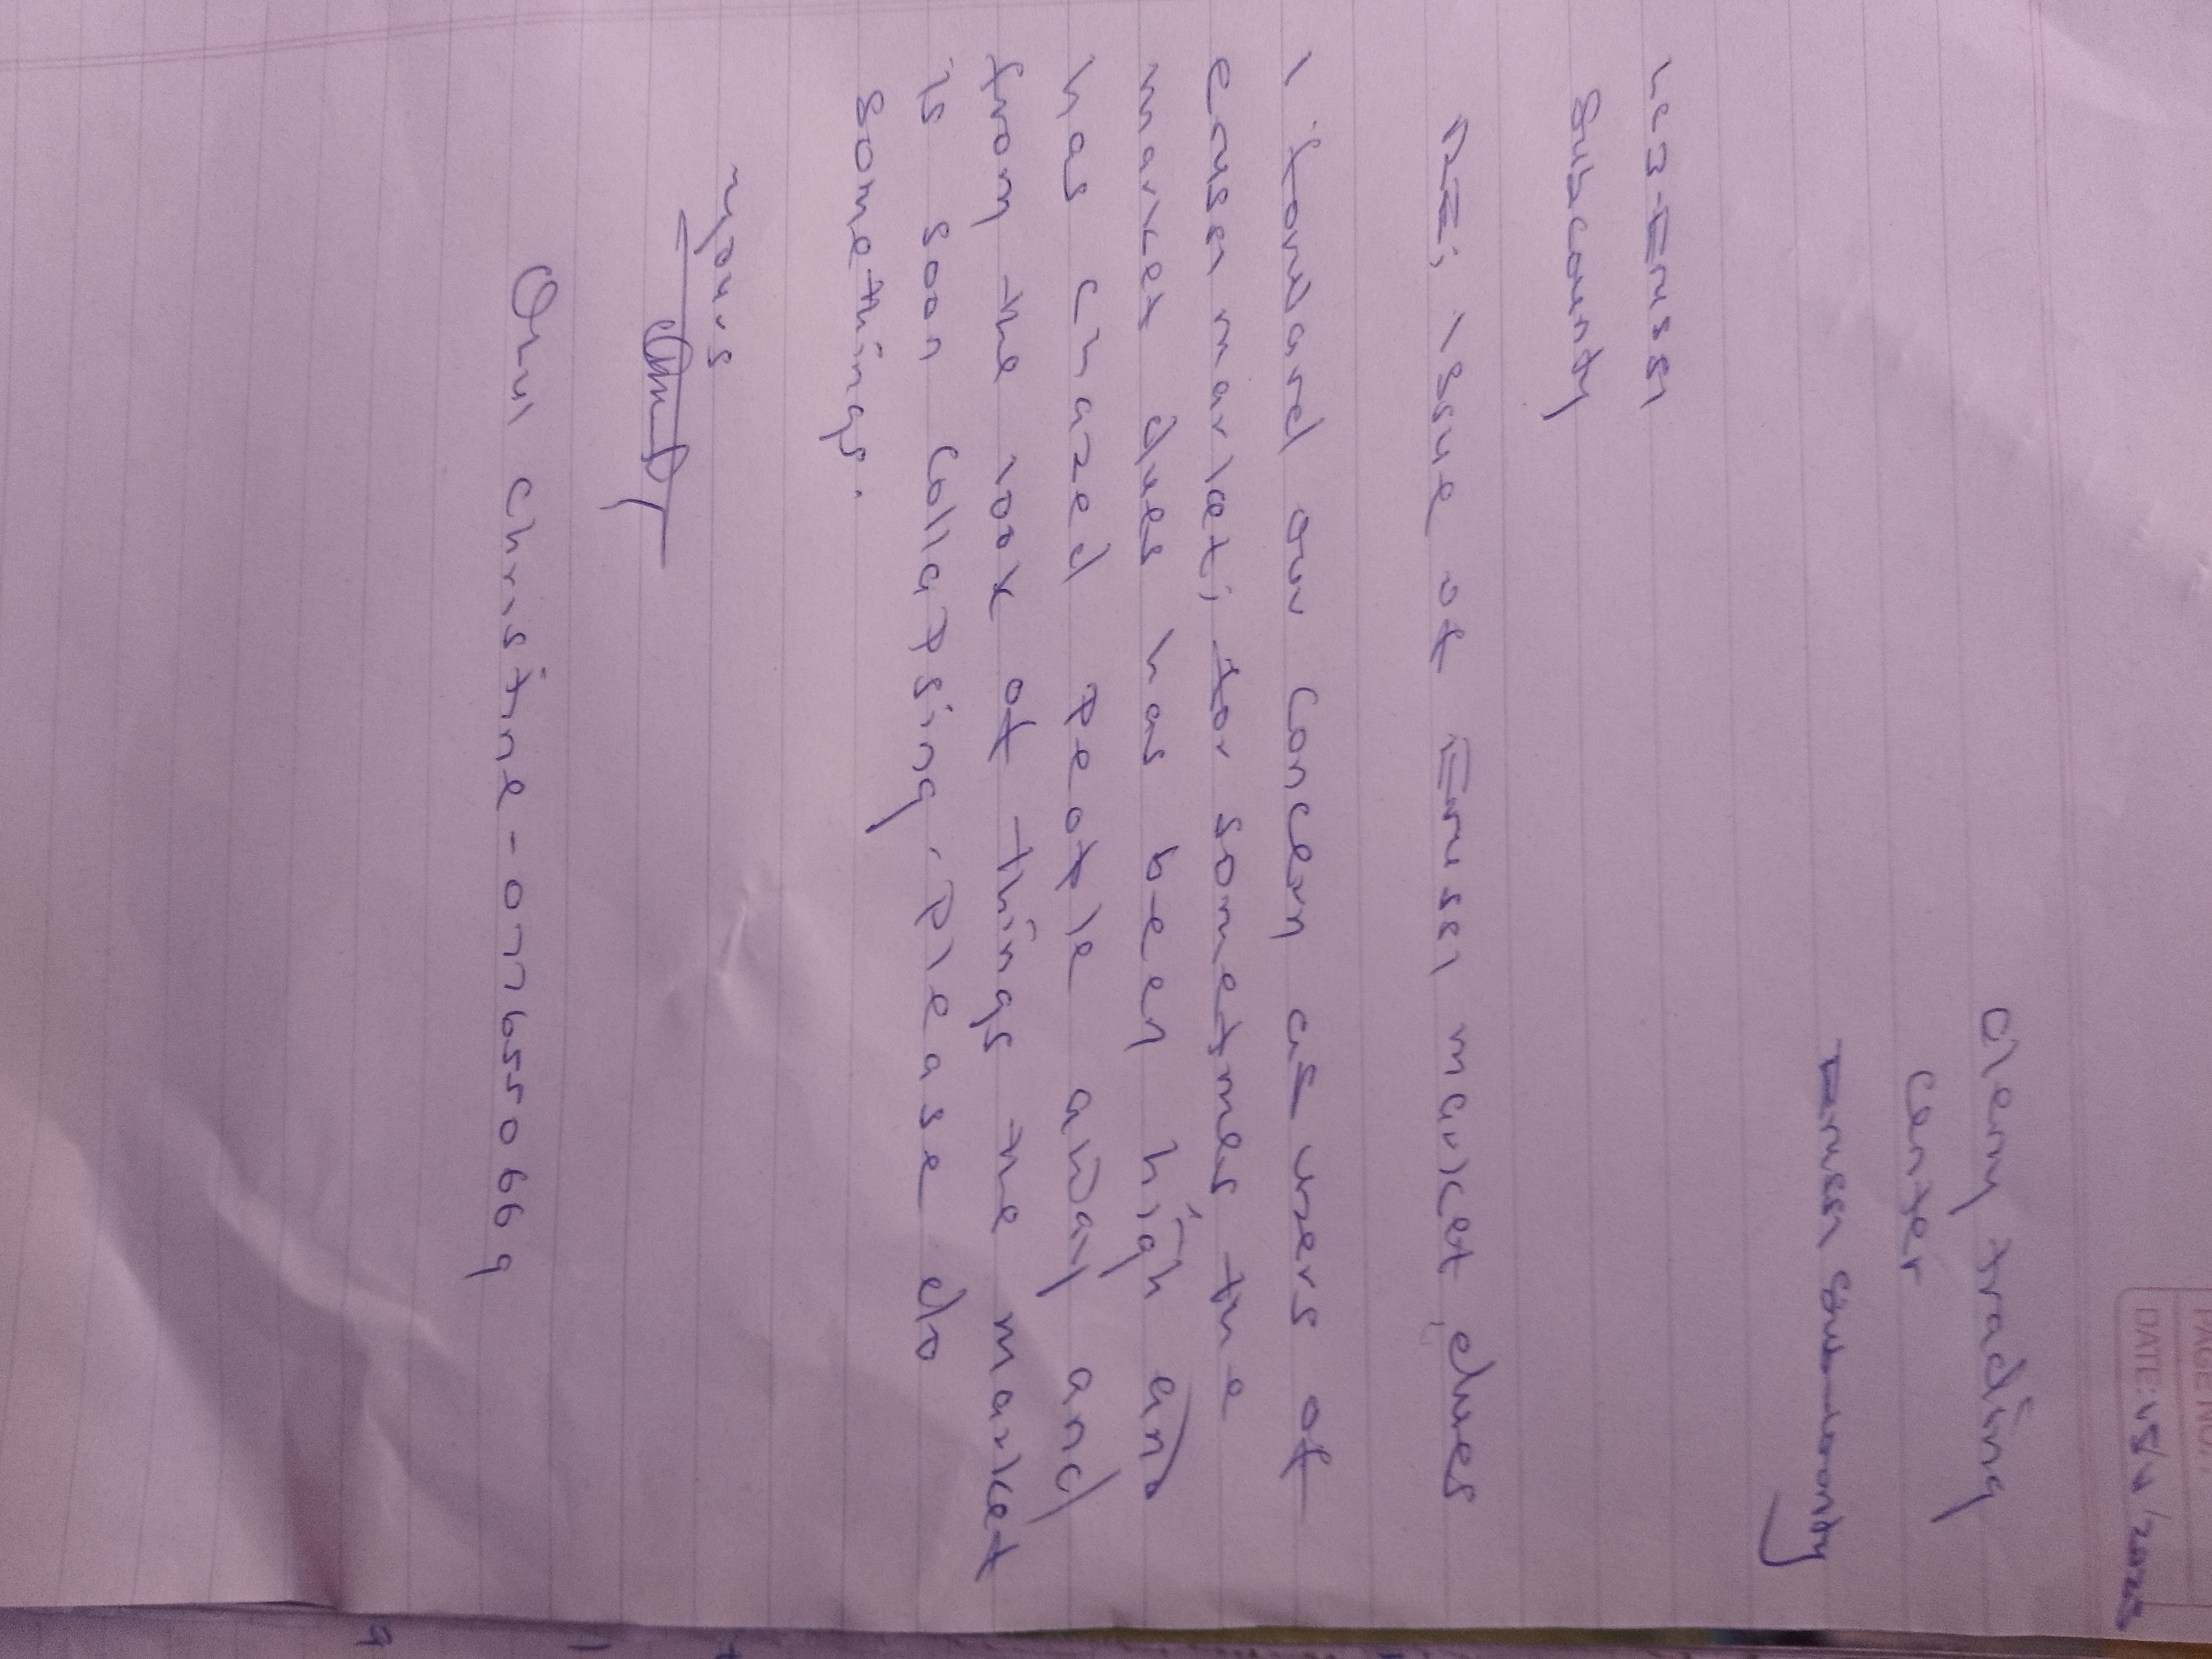 PAGE NO.
DATE: 15/4/2025
Oleny trading
Center
Erussi Sub-county
LC3-Erussi
Subcounty
RE; issue of Erussi market dues
I forward our concern as users of
erussi market; for sometmes the
market dues has been high and
has chazed people away and
from the look of things the market
is soon collapsing. Please do
somethings.
yours
Oru Christine - 0776550669